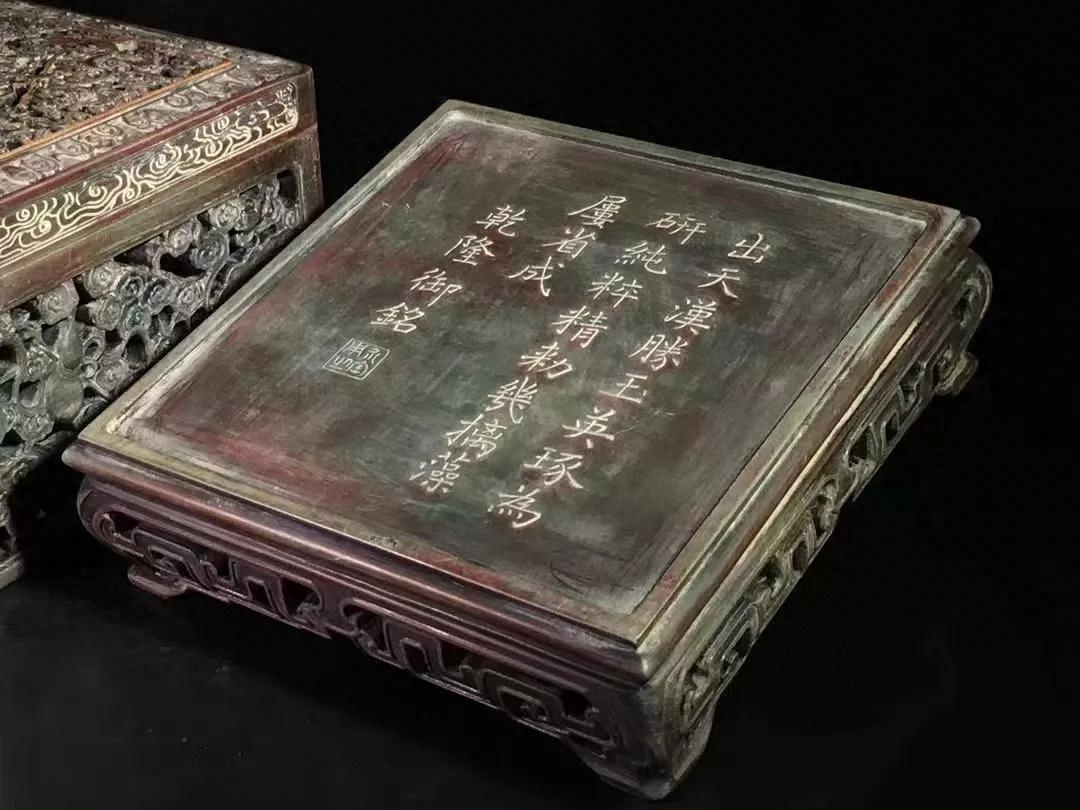 出天漢勝玉英琢為
研純粹精勅幾摛藻
屢省成
乾隆御銘